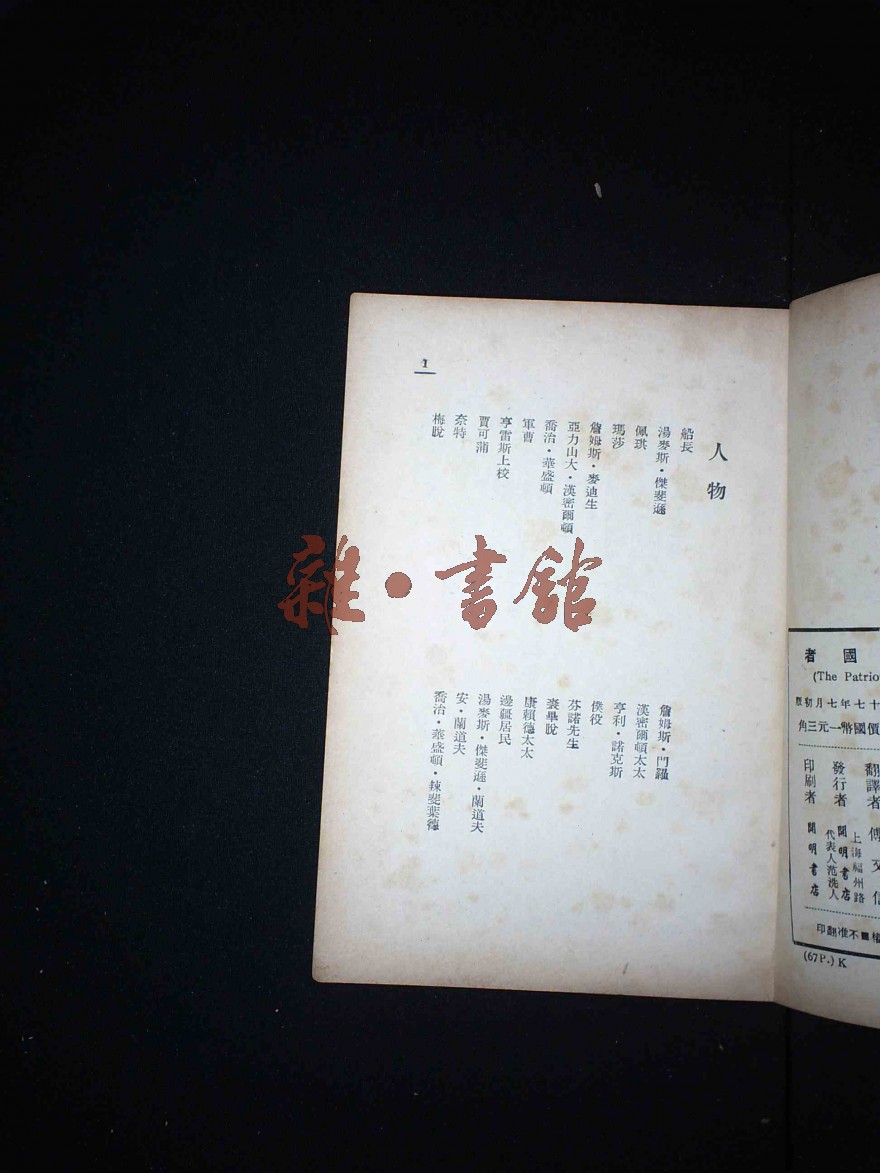 者 國
(The Patrio
版初月七年七十
角三元一幣國價
翻譯者 傅
發行者 開明書店
上海福州路
代表人范洗人
印刷者 開明書店
印翻准不
(67P.) K
人物
船長
湯麥斯・傑斐遜
佩琪
瑪莎
詹姆斯・麥迪生
亞力山大・漢密爾頓
喬治・華盛頓
軍曹
亨雷斯上校
賈可蒲
奈特
梅脫
詹姆斯・門羅
漢密爾頓太太
亨利・諾克斯
僕役
芬諾先生
裘畢脫
康賴德太太
邊疆居民
湯麥斯・傑斐遜・蘭道夫
安・蘭道夫
喬治・華盛頓・辣斐葉德
1
雜・書館